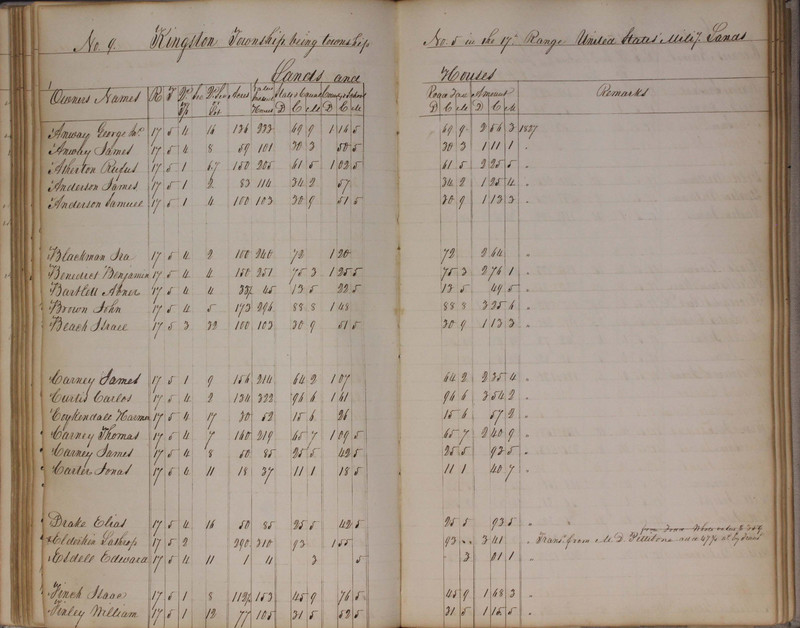 No. 9. Kingston Township being township No. 5 in the 17th Range United States Milit'y Lands
Lands and Houses
Owners Names R T Acres State & Canal Road Tax Amount Remarks
D C M D C M D C M D C M
Anway George 17 5 4 16 136 233 69 9 1 16 5 69 9 2 56 3 1837
Anway James 17 5 4 8 59 101 30 3 50 5 30 3 1 11 1 "
Atherton Rufus 17 5 1 6,7 150 205 61 5 1 02 5 61 5 2 25 5 "
Anderson James 17 5 1 2 83 114 34 2 57 34 2 1 25 4 "
Anderson Samuel 17 5 1 4 100 103 30 9 51 5 30 9 1 13 3 "
Blackman Ira 17 5 4 2 100 240 72 1 20 72 2 64 "
Benedict Benjamin 17 5 4 4 150 251 75 3 1 25 5 75 3 2 76 1 "
Bartlett Abner 17 5 4 4 45 13 5 22 5 13 5 49 5 "
Brown John 17 5 4 5 173 296 88 8 1 48 88 8 3 25 6 "
Beach Israel 17 5 3 32 100 103 30 9 51 5 30 9 1 13 3 "
Carney James 17 5 1 9 156 214 64 2 1 07 64 2 2 35 4 "
Curtis Carlos 17 5 4 2 134 322 96 6 1 61 96 6 3 54 2 "
Coykendale Harman 17 5 4 17 30 52 15 6 26 15 6 57 2 "
Carney Thomas 17 5 4 7 160 219 65 7 1 09 5 65 7 2 40 9 "
Carney James 17 5 4 8 50 85 25 5 42 5 25 5 93 5 "
Carter Jonas 17 5 4 11 18 37 11 1 18 5 11 1 40 7 "
Drake Elias 17 5 4 16 50 85 25 5 42 5 25 5 93 5 "
Elderkin Lathrop 17 5 2 290 310 93 1 55 93 " 3 41 " Trans. from M. D. Pettibone
Esdell Edward 17 5 4 11 1 4 3 5 3 01 1 "
Finch Isaac 17 5 1 8 112½ 153 45 9 76 5 45 9 1 68 3 "
Finley William 17 5 1 12 77 105 31 5 52 5 31 5 1 15 5 "